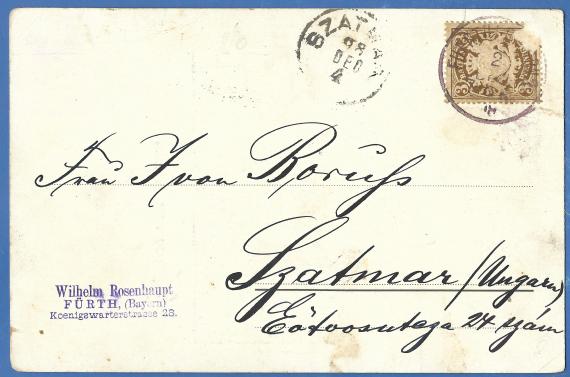 SZATMÁR
98
DEC
4
3 3
2
Frau J von Boruss
Szatmar (Ungarn)
Eötvosutcza 24 szám
Wilhelm Rosenhaupt
FÜRTH, (Bayern)
Koenigswarterstrasse 28.